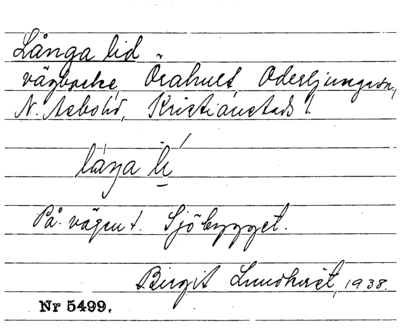 Långa lid
vägbacke, Örahult, Oderljunga sn,
N. Åsbohd, Kristianstads l.
låŋa lí
På vägen t. Sjöbygget.
Birgit Lundqvist, 1938.
Nr 5499.